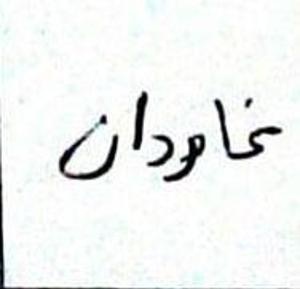 خاودان